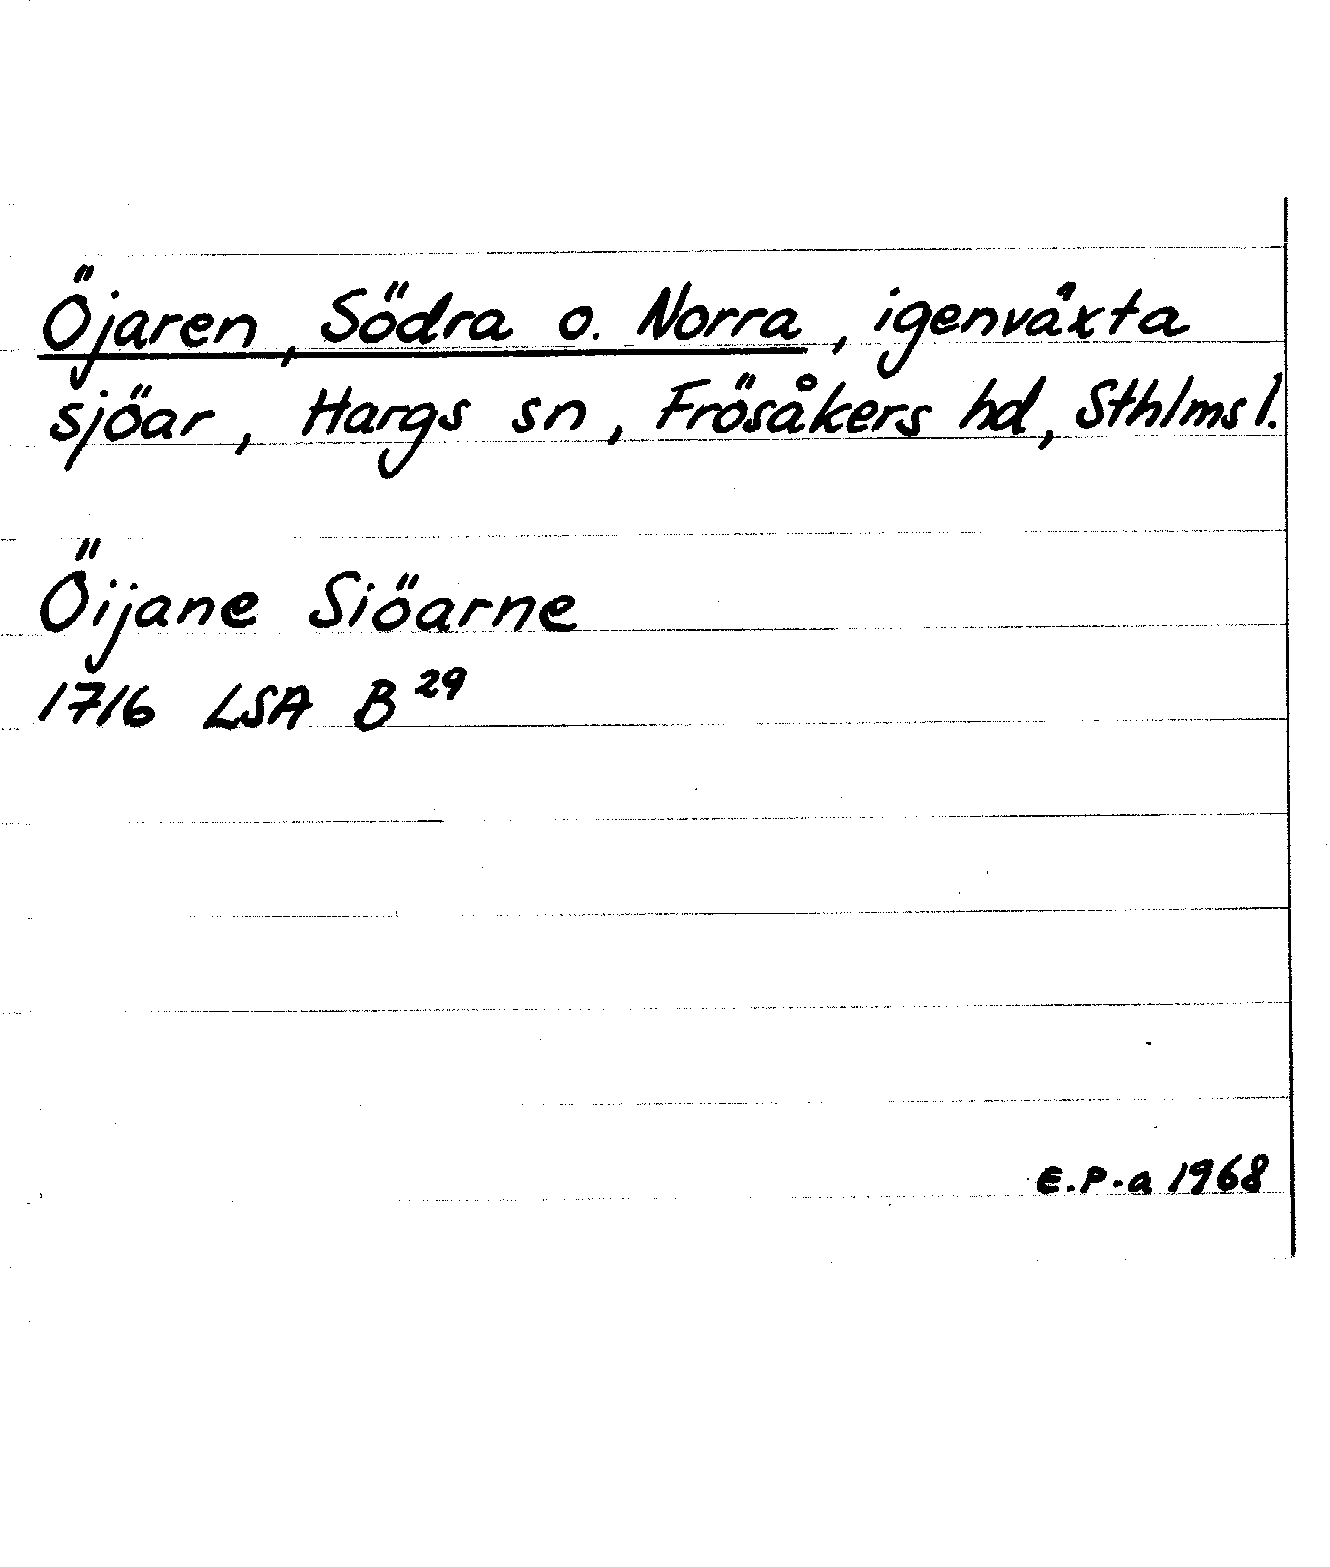 Öjaren, Södra o. Norra, igenväxta
sjöar, Hargs sn, Frösåkers hd, Sthlms l.
Öijane Siöarne
1716 LSA B 29
E.P-a 1968